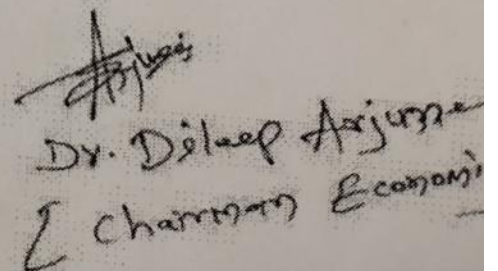 Dr. Dileep Arjune
[ Chairman Economi